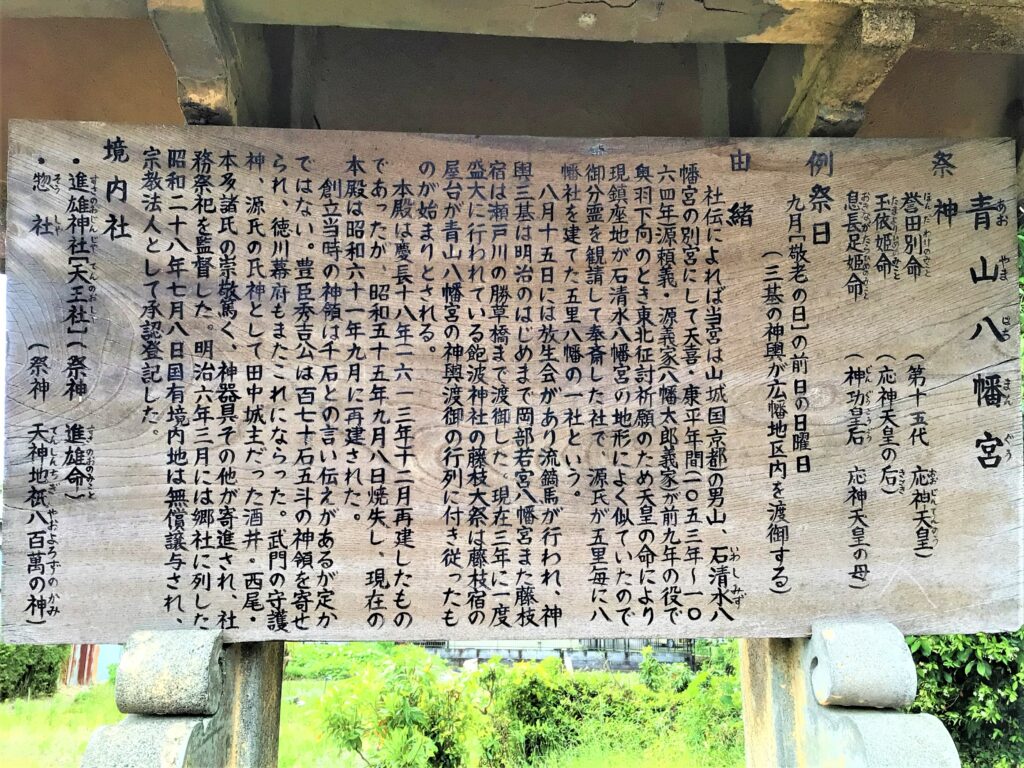 青山八幡宮
祭神
誉田別命（第十五代 応神天皇）
玉依姫命（応神天皇の后）
息長足姫命（神功皇后 応神天皇の母）
例祭日
九月［敬老の日］の前日の日曜日
（三基の神輿が広幡地区内を渡御する）
由緒
社伝によれば当宮は山城国京都の男山、石清水八
幡宮の別宮にして天喜・康平年間一〇五三年～一〇
六四年源頼義・源義家八幡太郎義家が前九年の役で
奥羽下向のとき東北征討祈願のため天皇の命により
現鎮座地が石清水八幡宮の地形によく似ていたので
御分霊を観請して奉斎した社で、源氏が五里毎に八
幡社を建てた五里八幡の一社という。
八月十五日には放生会があり流鏑馬が行われ、神
輿三基は明治のはじめまで岡部若宮八幡宮また藤枝
宿は瀬戸川の勝草橋まで渡御した。現在三年に一度
盛大に行われている飽波神社の藤枝大祭は藤枝宿の
屋台が青山八幡宮の神輿渡御の行列に付き従ったも
のが始まりとされる。
本殿は慶長十八年一六一三年十二月再建したもの
であったが、昭和五十五年九月八日焼失し、現在の
本殿は昭和六十一年九月に再建された。
創立当時の神領は千石との言い伝えがあるが定か
ではない。豊臣秀吉公は百七十石五斗の神領を寄せ
られ、徳川幕府もまたこれにならった。武門の守護
神、源氏の氏神として田中城主だった酒井・西尾・
本多諸氏の崇敬篤く、神器具その他が寄進され、社
務祭祀を監督した。明治六年三月には郷社に列した
昭和二十八年七月八日国有境内地は無償譲与され、
宗教法人として承認登記した。
境内社
・進雄神社［天王社］（祭神 進雄命）
・惣社（祭神 天神地祇八百萬の神）